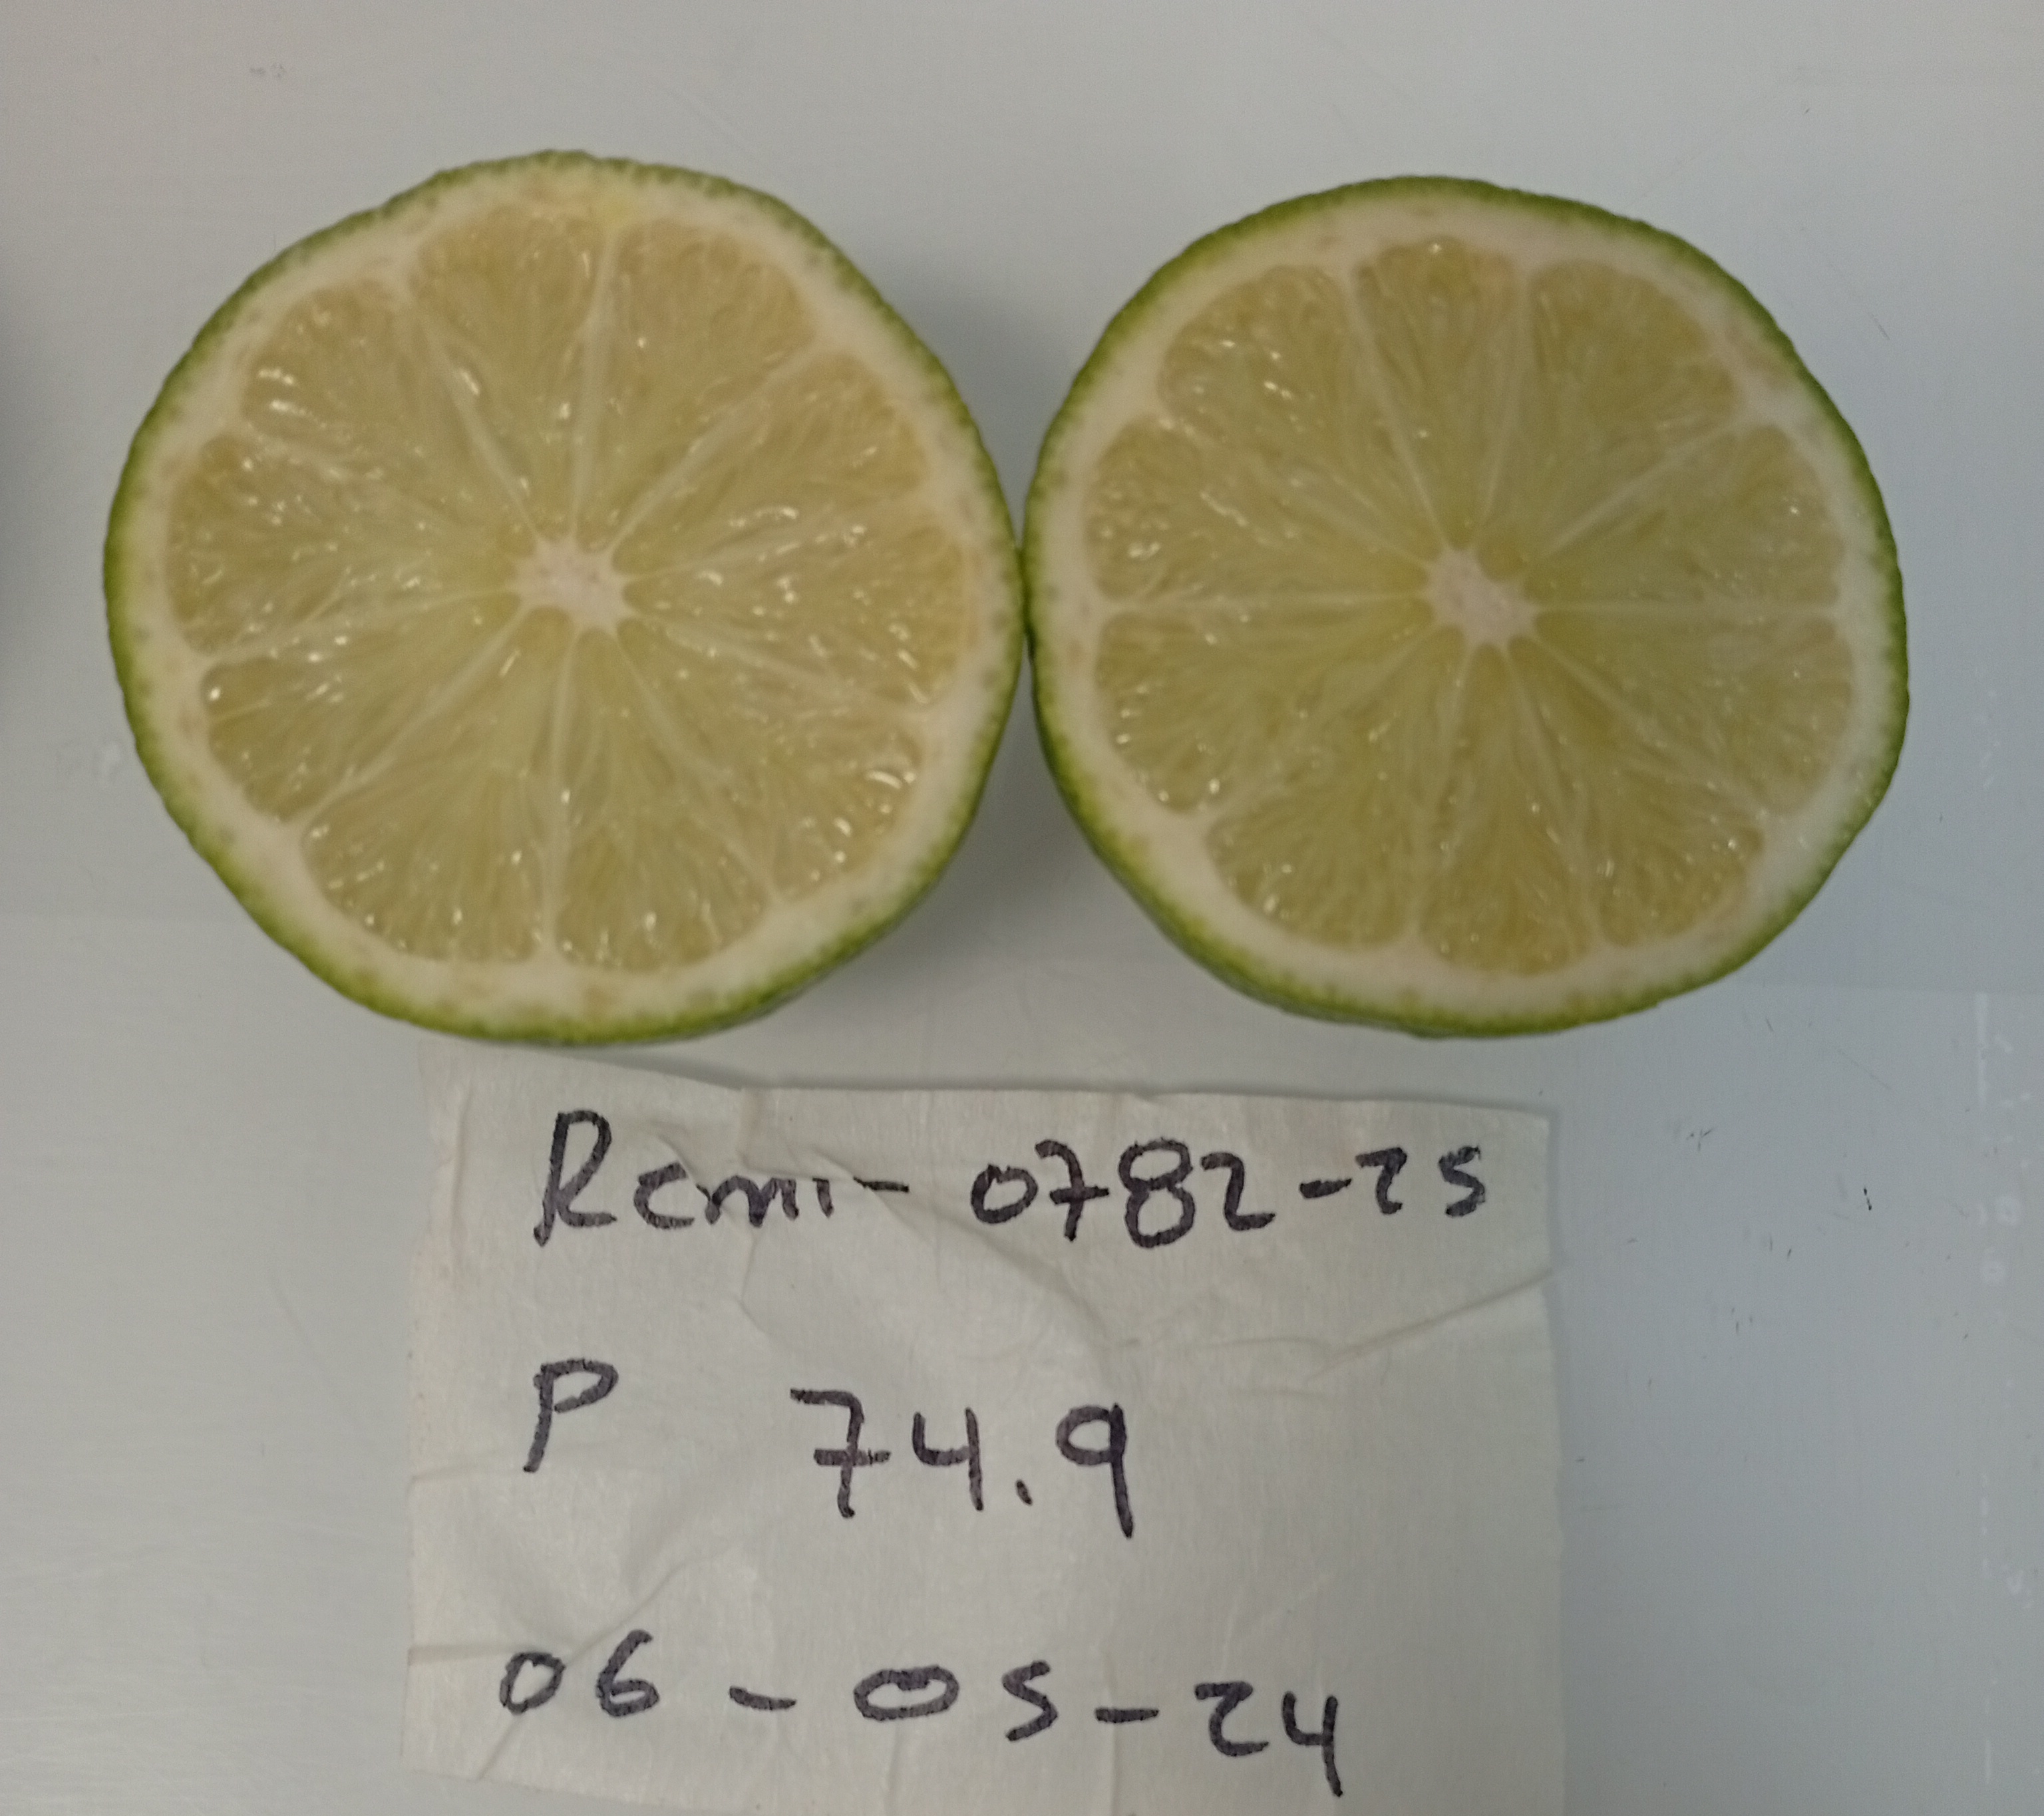 Remi- 0782-25
P 74.9
06-05-24